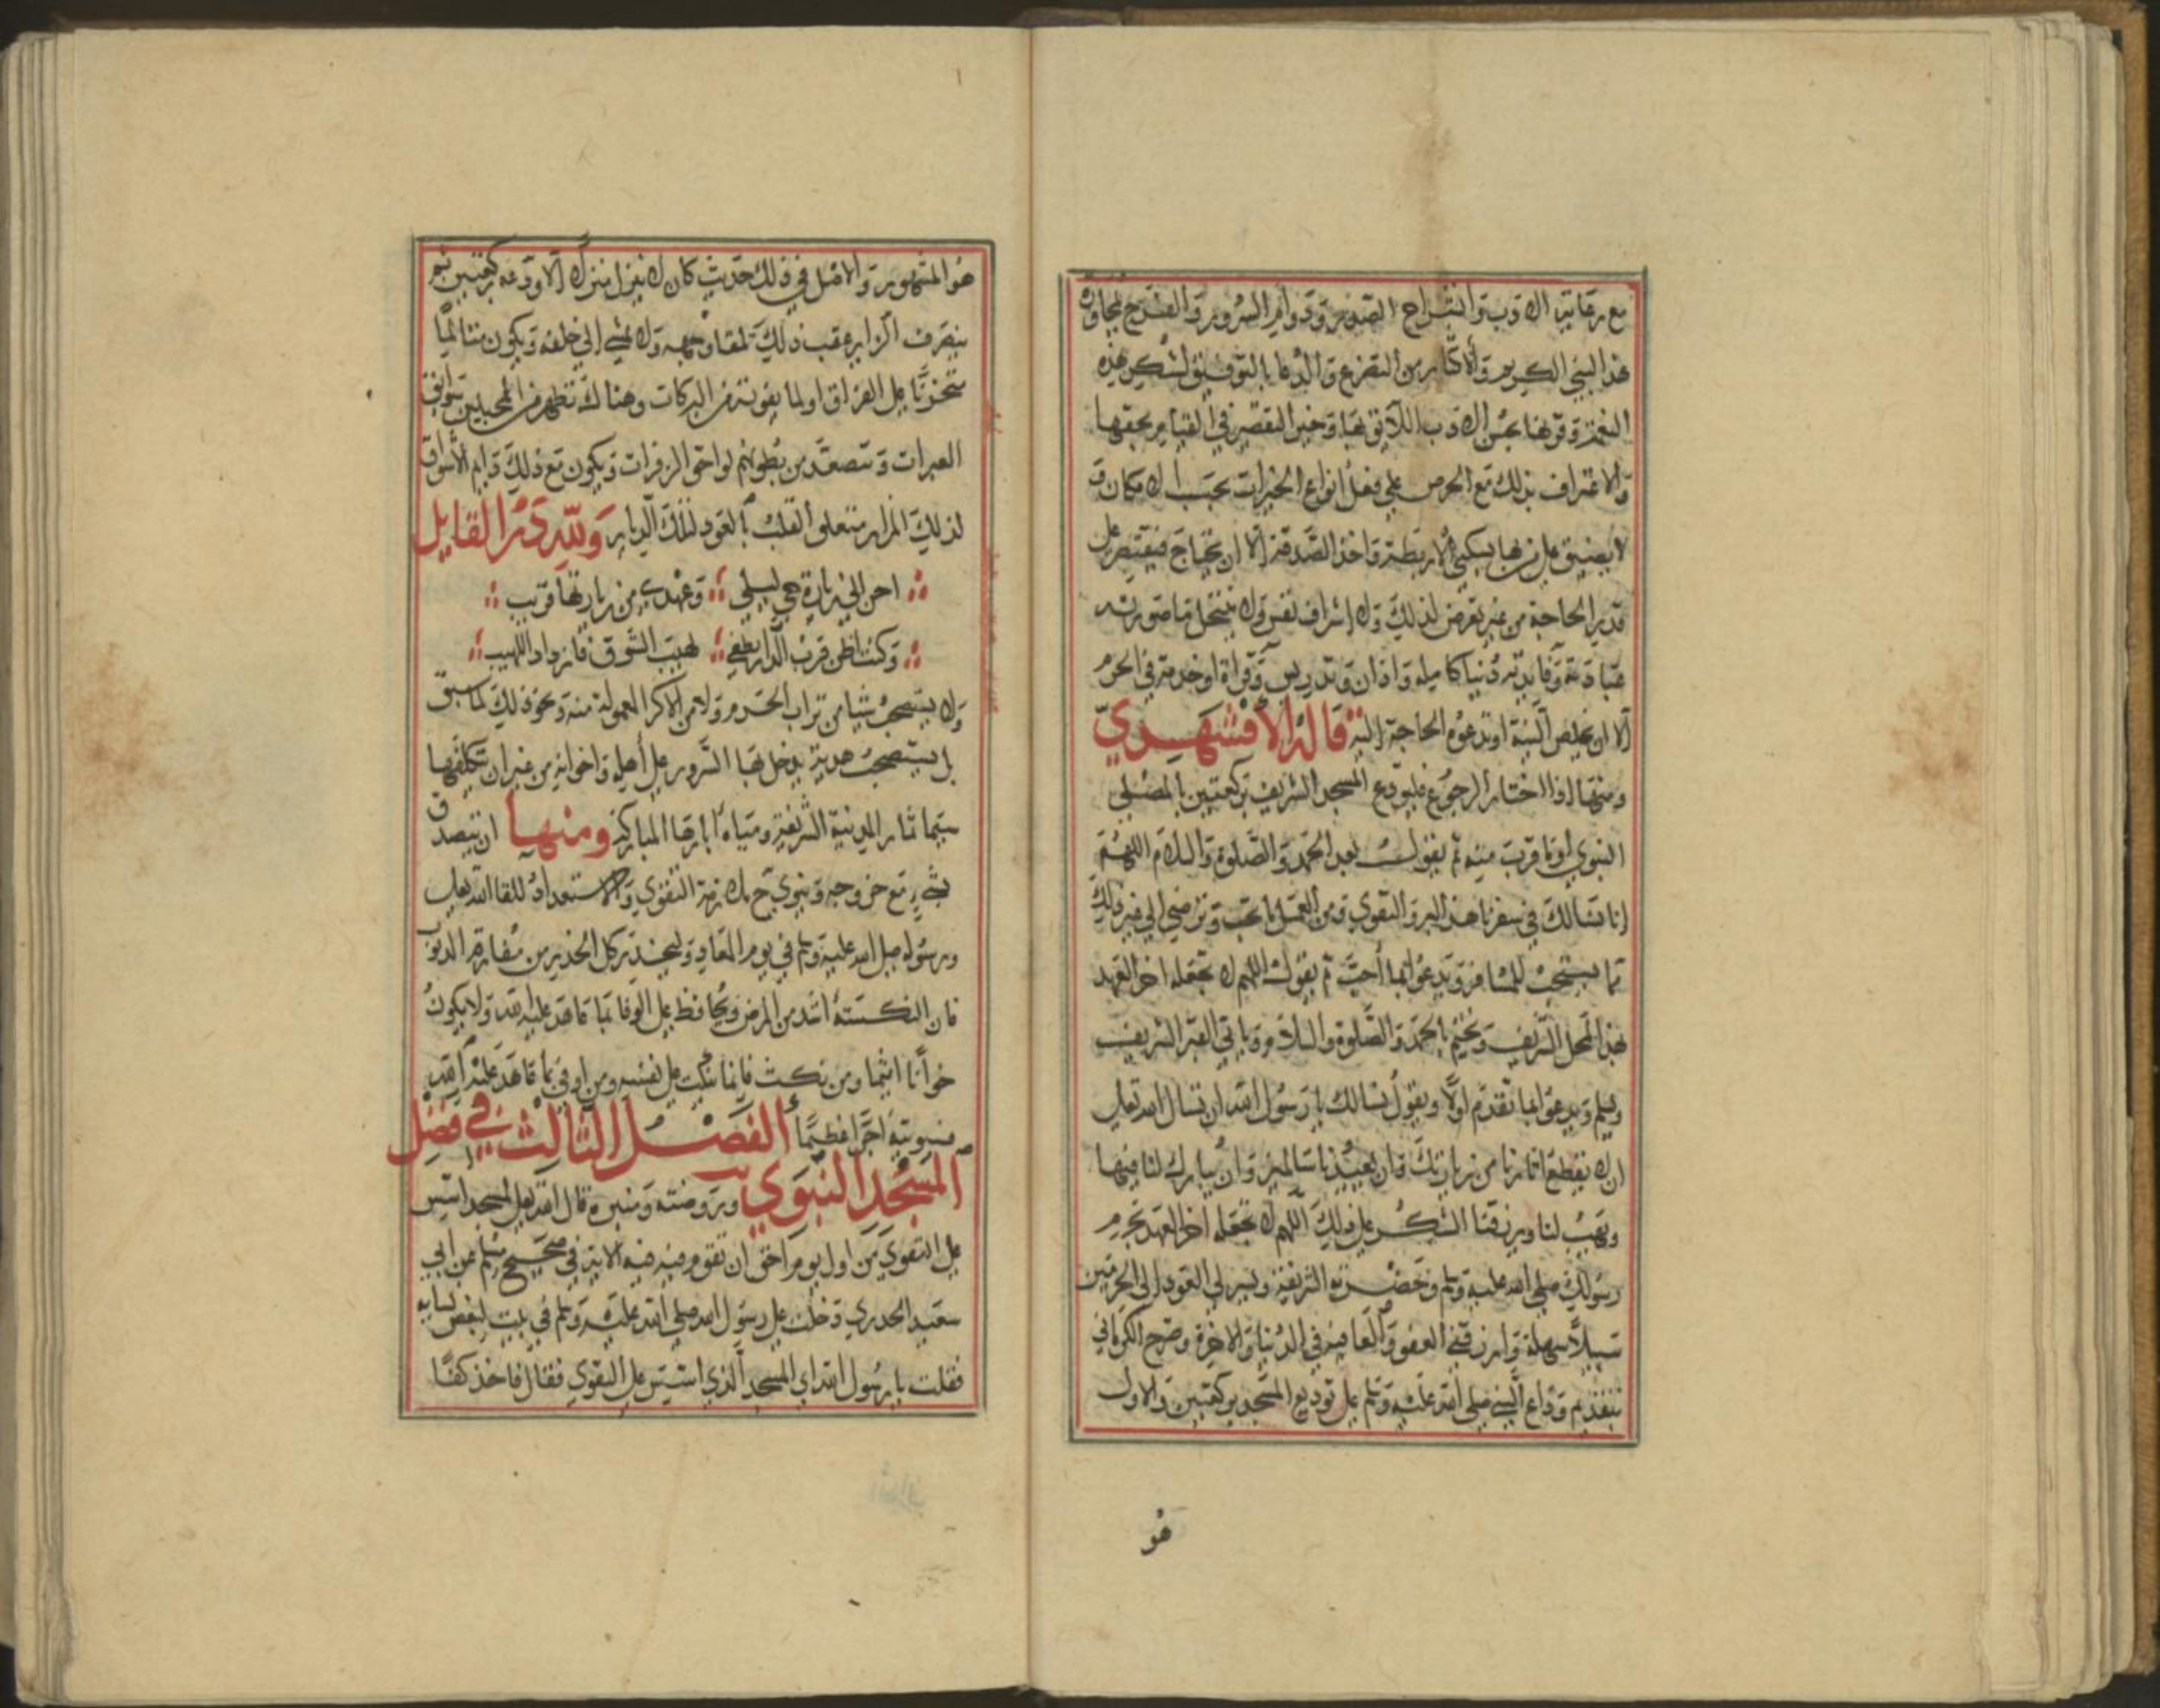 مع رعاية الادب وانشراح الصدور ودوام السرور والفرح بمجاورة
هذا النبي الكريم والاكثار من التضرع والدعا بالتوفيق لشكر هذه
النعمة وقرنها بحسن الادب اللايق بها وخير التقصير في القيام بحقها
والاعتراف بذلك مع الحرص على فعل انواع الخيرات بحسب الامكان و
لا يضيق على من بها بسكنى الاربطة واخذ الصدقة الا ان يحتاج فيقتصر على
قدر الحاجة من غير تعرض لذلك ولا اشراف نفس ولا ينتحل ما صورته
عبادة وفايدته دنيا كامامة واذان وتدريس وقراة او خدمة في الحرم
الا ان يخلص النية او تدعوه الحاجة اليه قاله الاقشهري
ومنها اذا اختار الرجوع فليودع المسجد الشريف بركعتين بالمصلى
النبوي او ما قرب منه ثم يقول بعد الحمد والصلوة والسلام اللهم
انا نسالك في سفرنا هذا البر والتقوى ومن العمل ما تحب وترضى الى غير ذلك
مما يستحب للمسافر ويدعو بما احب ثم يقول اللهم لا تجعله اخر العهد
بهذا المحل الشريف ويختم بالحمد والصلوة والسلام وياتي القبر الشريف
ويسلم ويدعو بما تقدم اولا ويقول نسالك يا رسول الله ان تسال الله تعالى
ان لا يقطع اثارنا من زيارتك وان يعيدنا سالمين وان يبارك لنا فيما
وهب لنا ويرزقنا الشكر على ذلك اللهم لا تجعله اخر العهد بحرم
رسولك صلى الله عليه وسلم وحضرته الشريفة ويسر لي العود الى الحرمين
سبيلا سهلة وارزقني العفو والعافية في الدنيا والاخرة وصرح الكرماني
بتقديم وداع النبي صلى الله عليه وسلم على توديع المسجد بركعتين والاول
هو
هو المشهور والاصل في ذلك حديث كان لا ينزل منزلا الا ودعه بركعتين ثم
ينصرف الزاير عقب ذلك تلقا وجهه ولا يمشي الى خلفه ويكون متالما
متحزنا على الفراق اولما يفوته من البركات وهناك تظهر من المحبين سوابق
العبرات وتتصعد من بطونهم لواحق الزفرات ويكون مع ذلك دايم الاشواق
لذلك المزار متعلق القلب بالعود لتلك الديار ولله در القايل
احن الى زيارة حي ليلى وعهدي من زيارتها قريب
وكنت اظن قرب الدار يطفي لهيب الشوق فازداد اللهيب
ولا يستصحب شيا من تراب الحرم ولا من الاكر المعمولة منه ونحو ذلك لما سبق
بل يستصحب هدية يدخل بها السرور على اهله واخوانه من غير ان يتكلفها
سيما ثمار المدينة الشريفة ومياه ابارها المباركة ومنها ان يتصدق
بشيء مع خروجه وينوي ح ملازمة التقوى والاستعداد للقا الله تعالى
ورسوله صلى الله عليه وسلم في يوم المعاد وليحذر كل الحذر من مقارفة الذنوب
فان النكسة اشد من المرض ويحافظ على الوفا بما عاهد عليه الله ولا يكون
خوانا اثيما ومن نكث فانما ينكث على نفسه ومن اوفى بما عاهد عليه الله
فسيوتيه اجرا عظيما الفصل الثالث في فضل
المسجد النبوي وروضته ومنبره قال الله تعالى لمسجد اسس
على التقوى من اول يوم احق ان تقوم فيه فيه الاية في صحيح مسلم عن ابي
سعيد الخدري دخلت على رسول الله صلى الله عليه وسلم في بيت لبعض نسايه
فقلت يا رسول الله اي المسجد الذي اسس على التقوى فقال فاخذ كفا